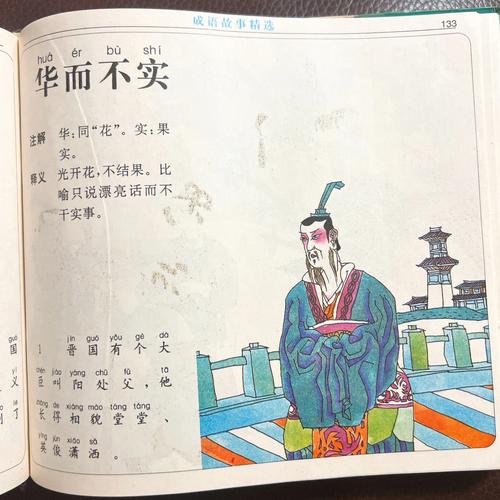 成语故事精选
133
huá ér bù shí
华而不实
注解 华:同“花”。实:果
实。
释义 光开花,不结果。比
喻只说漂亮话而不
干实事。
jìn guó yǒu gè dà
1 晋国有个大
chén jiào yáng chǔ fù , tā
臣叫阳处父,他
zhǎng de xiàng mào táng táng
长得相貌堂堂、
yīng jùn xiāo sǎ
英俊潇洒。
国
yì
义
了